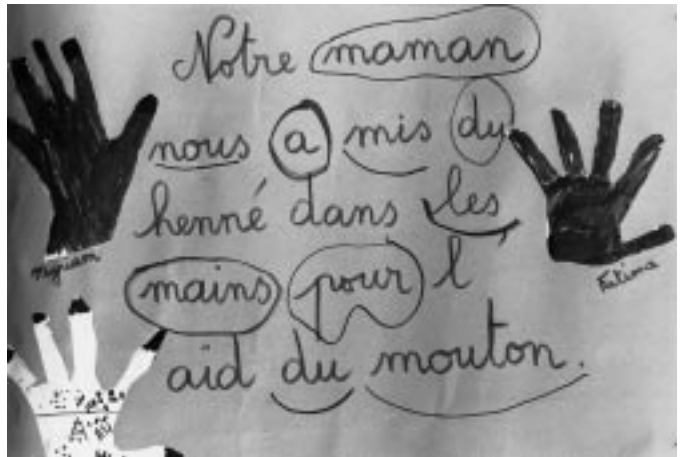 Notre maman
nous a mis du
henné dans les
mains pour l'
aid du mouton.
Myriam
Fatima